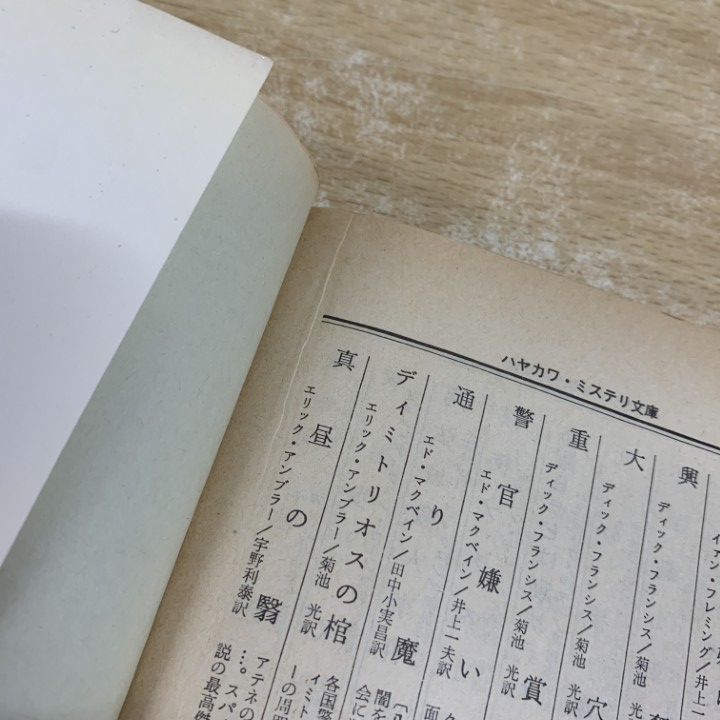 ハヤカワ・ミステリ文庫
イアン・フレミング/井上一
興
ディック・フランシス/菊池
大穴
ディック・フランシス/菊池 光訳
重賞
ディック・フランシス/菊池 光訳
警官嫌い
エド・マクベイン/井上一夫訳
通り魔
エド・マクベイン/田中小実昌訳
闇を
会に
ディミトリオスの棺
エリック・アンブラー/菊池 光訳
各国警
ィミト
ーの周
真昼の翳
エリック・アンブラー/宇野利泰訳
アテネの
…。スパ
説の最高傑